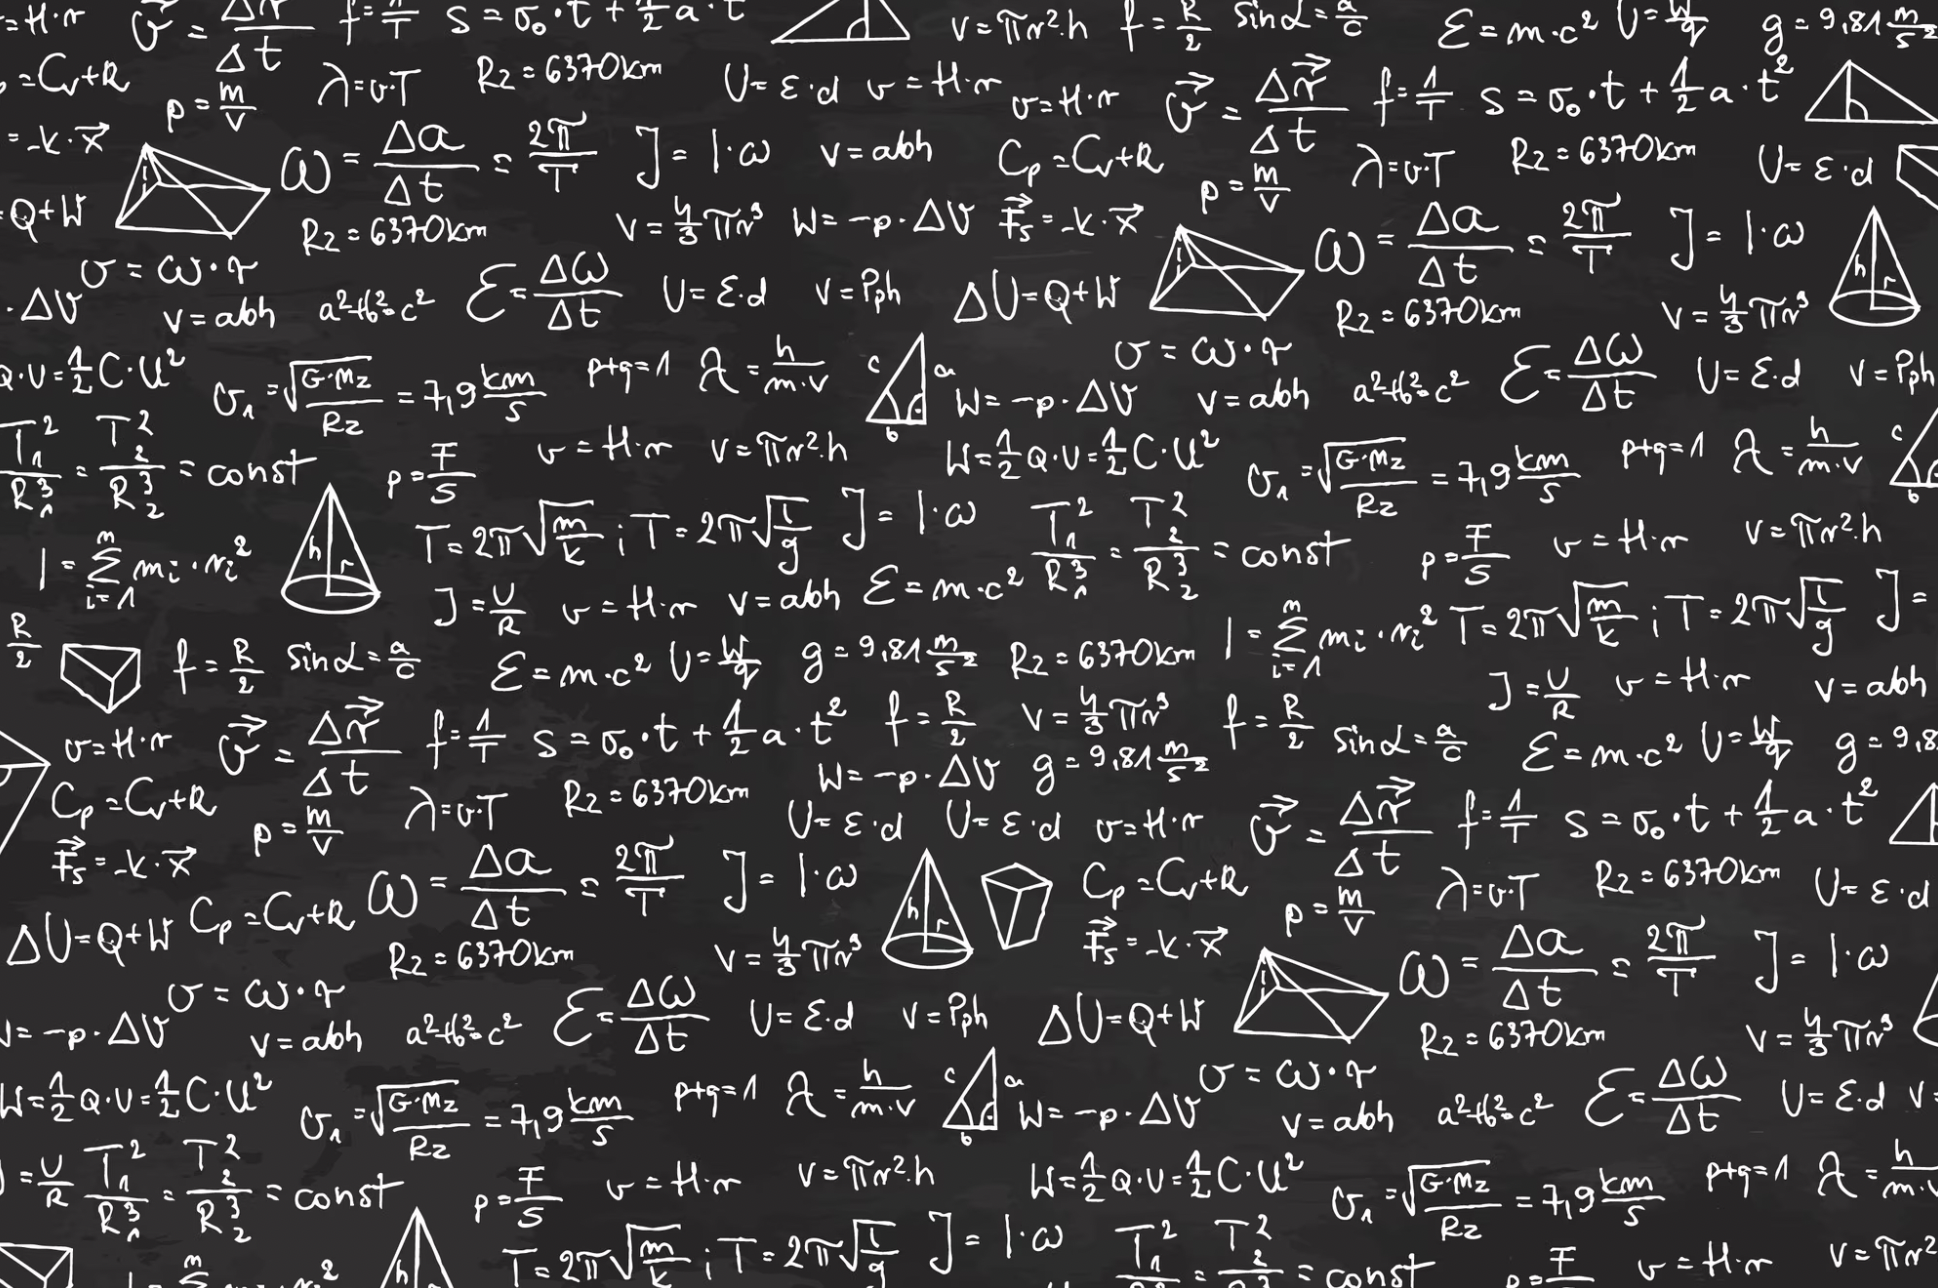 =H·r v⃗ = Δr⃗/Δt f=1/T s=σ₀·t+½a·t v=πr²·h f=R/2 sinα=a/c Ɛ=m·c² U=W/q g=9,81 m/s²
=Cv+R p=m/V λ=υ·T Rz=6370km U=Ɛ·d v=H·r υ=H·r v⃗=Δr⃗/Δt f=1/T s=σ₀·t+½a·t²
=-k·x⃗ ω=Δa/Δt=2π/T J=I·ω v=abh Cp=Cv+R p=m/V λ=υ·T Rz=6370km U=Ɛ·d
=Q+W Rz=6370km v=4/3πr³ W=-p·ΔV F⃗s=-k·x⃗ ω=Δa/Δt=2π/T J=I·ω
·ΔV υ=ω·r v=abh a²+b²=c² Ɛ=Δω/Δt U=Ɛ·d v=Pph ΔU=Q+W Rz=6370km v=4/3πr³ h r
Q·U=½C·U² υ₁=√(G·Mz/Rz)=7,9 km/s p+q=1 λ=h/m·v c a b υ=ω·r W=-p·ΔV v=abh a²+b²=c² Ɛ=Δω/Δt U=Ɛ·d v=Pph
T₁²/R₁³=T₂²/R₂³=const p=F/S v=H·r v=πr²·h W=½Q·U=½C·U² υ₁=√(G·Mz/Rz)=7,9 km/s p+q=1 λ=h/m·v c b
I=Σ mi·ri² m i=1 h r T=2π√(m/k) ; T=2π√(l/g) J=I·ω T₁²/R₁³=T₂²/R₂³=const p=F/S v=H·r v=πr²·h
J=U/R v=H·r v=abh Ɛ=m·c² I=Σ mi·ri² m i=1 T=2π√(m/k) ; T=2π√(l/g) J=
R/2 f=R/2 sinα=a/c Ɛ=m·c² U=W/q g=9,81 m/s² Rz=6370km J=U/R v=H·r v=abh
υ=H·r v⃗=Δr⃗/Δt f=1/T s=σ₀·t+½a·t² f=R/2 v=4/3πr³ f=R/2 sinα=a/c Ɛ=m·c² U=W/q g=9,8
Cp=Cv+R p=m/V λ=υ·T Rz=6370km W=-p·ΔV g=9,81 m/s² U=Ɛ·d U=Ɛ·d υ=H·r v⃗=Δr⃗/Δt f=1/T s=σ₀·t+½a·t²
F⃗s=-k·x⃗ ω=Δa/Δt=2π/T J=I·ω h r Cp=Cv+R p=m/V λ=υ·T Rz=6370km U=Ɛ·d
ΔU=Q+W Cp=Cv+R Rz=6370km v=4/3πr³ F⃗s=-k·x⃗ ω=Δa/Δt=2π/T J=I·ω
=-p·ΔV υ=ω·r v=abh a²+b²=c² Ɛ=Δω/Δt U=Ɛ·d v=Pph ΔU=Q+W Rz=6370km v=4/3πr³
W=½Q·U=½C·U² υ₁=√(G·Mz/Rz)=7,9 km/s p+q=1 λ=h/m·v c a b υ=ω·r W=-p·ΔV v=abh a²+b²=c² Ɛ=Δω/Δt U=Ɛ·d v=
=U/R T₁²/R₁³=T₂²/R₂³=const p=F/S v=H·r v=πr²·h W=½Q·U=½C·U² υ₁=√(G·Mz/Rz)=7,9 km/s p+q=1 λ=h/m·v
m h T=2π√(m/k) ; T=2π√(l/g) J=I·ω T₁²=T₂²=const p=F v=H·r v=πr²